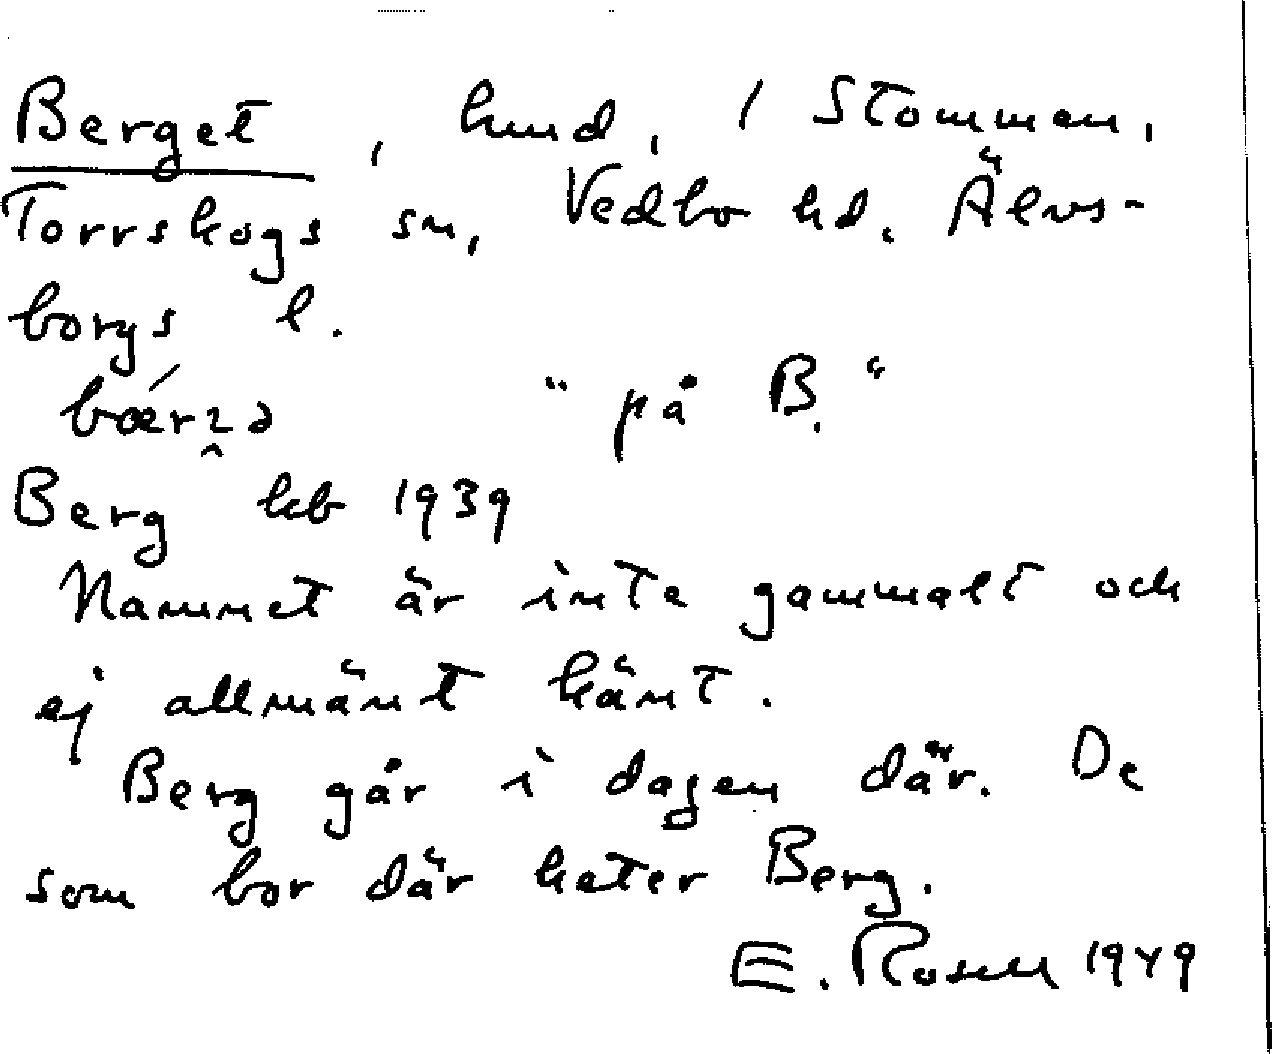 Berget, hmd, 1 Stommen,
Torrskogs sn, Vedbo hd. Älvs-
borgs l.
bǽrꝛ̭ə "på B."
Berg kb 1939
Namnet är inte gammalt och
ej allmänt känt.
Berg går i dagen där. De
som bor där heter Berg.
E. Rosell 1949